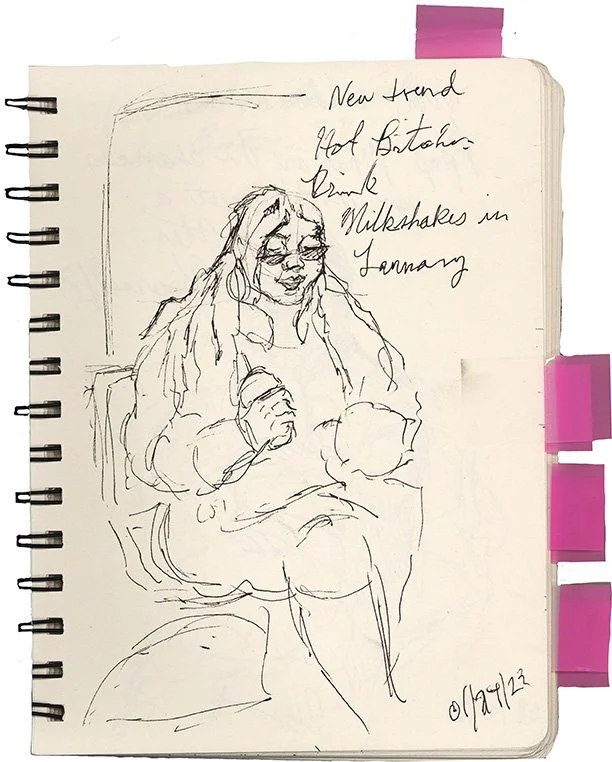 New trend
Hot Bitches
Drink
Milkshakes in
January
01/24/23